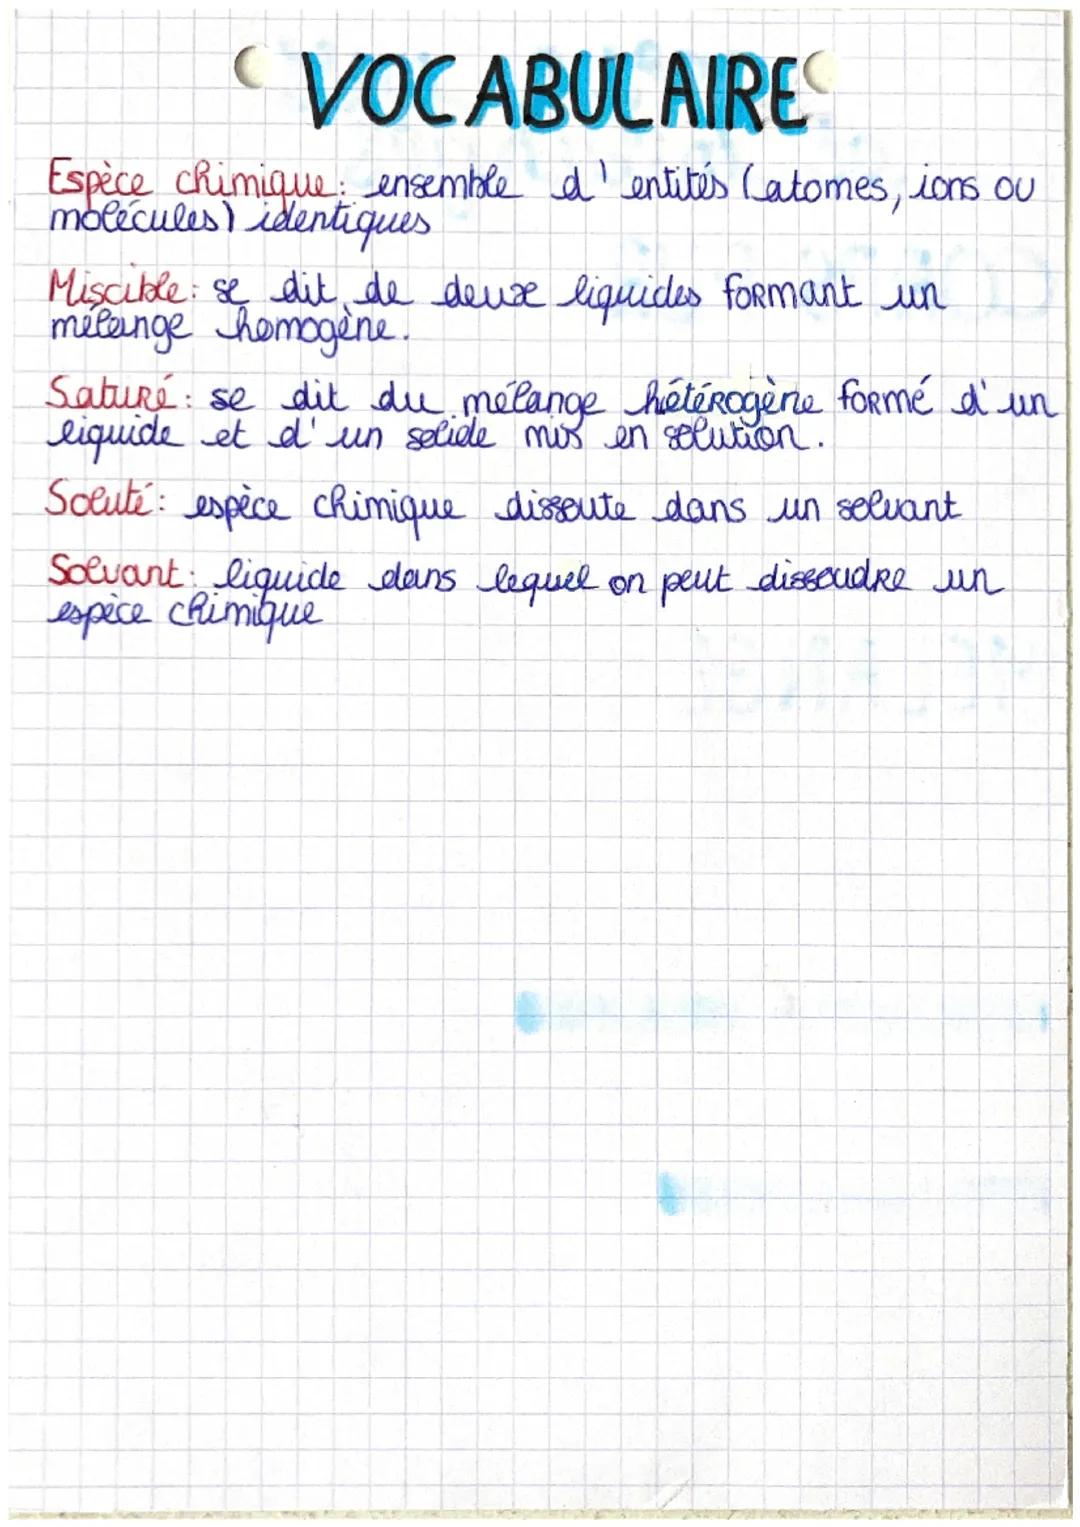 VOCABULAIRE
Espèce chimique: ensemble d'entités (atomes, ions ou
molécules) identiques
Miscible: se dit de deux liquides formant un
mélange homogène.
Saturé: se dit du mélange hétérogène formé d'un
liquide et d'un solide mis en solution.
Soluté: espèce chimique dissoute dans un solvant
Solvant: liquide dans lequel on peut dissoudre un
espèce chimique